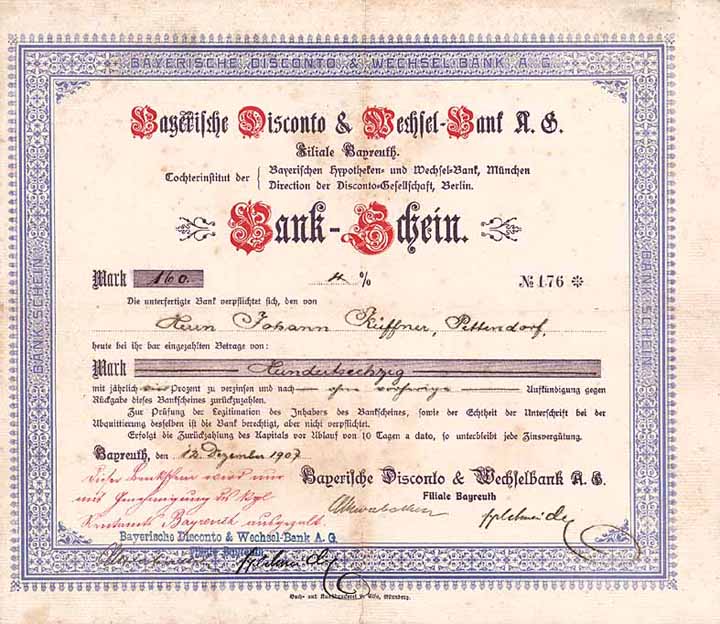 BAYERISCHE DISCONTO & WECHSEL BANK A. G.
BANK SCHEIN
BANK SCHEIN
Bayerische Disconto & Wechsel-Bank A. G.
Filiale Bayreuth.
Tochterinstitut der { Bayerischen Hypotheken- und Wechsel-Bank, München
Direction der Disconto-Gesellschaft, Berlin.
Bank-Schein.
Mark 160. 4 % № 176
Die unterfertigte Bank verpflichtet sich, den von
Herrn Johann Küffner, Pettendorf,
heute bei ihr bar eingezahlten Betrage von:
Mark Hundertsechzig
mit jährlich vier Prozent zu verzinsen und nach ohne vorherige Aufkündigung gegen
Rückgabe dieses Bankscheines zurückzuzahlen.
Zur Prüfung der Legitimation des Inhabers des Bankscheines, sowie der Echtheit der Unterschrift bei der
Abquittierung desselben ist die Bank berechtigt, aber nicht verpflichtet.
Erfolgt die Zurückzahlung des Kapitals vor Ablauf von 10 Tagen a dato, so unterbleibt jede Zinsvergütung.
Bayreuth, den 12. Dezember 1907
Bayerische Disconto & Wechselbank A. G.
Filiale Bayreuth
Dieser Bankschein wird nur
mit Genehmigung des kgl
Rentamts Bayreuth ausgezahlt.
Bayerische Disconto & Wechsel-Bank A. G.
Filiale Bayreuth